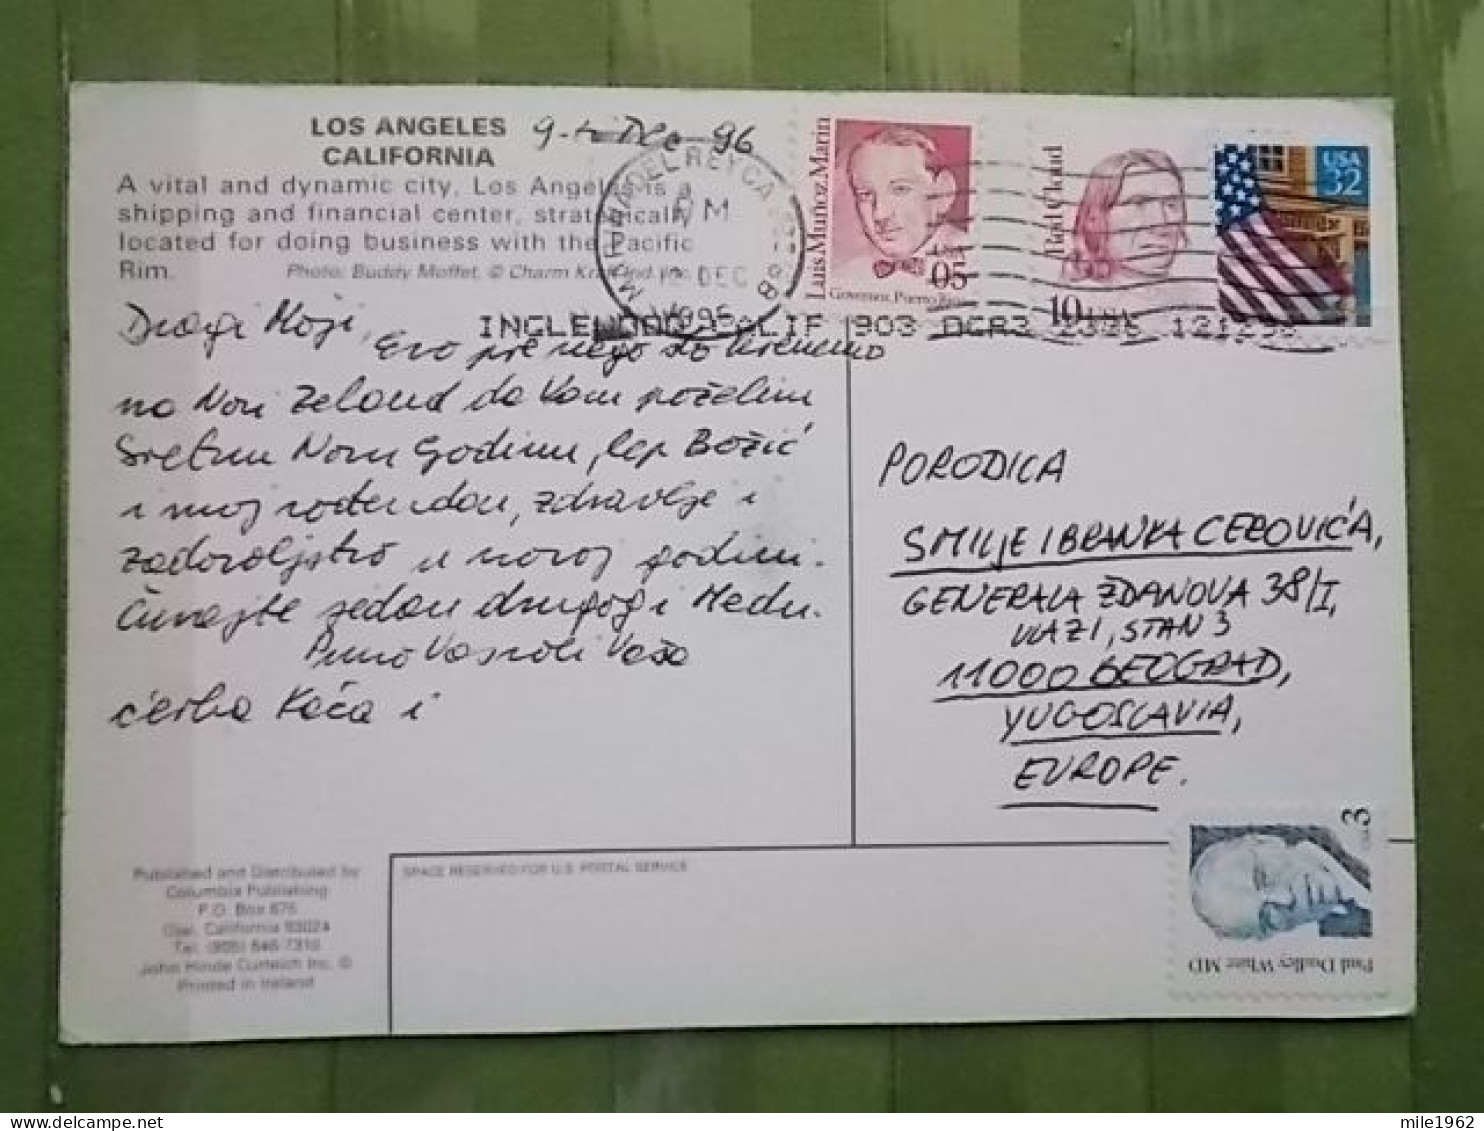 LOS ANGELES
CALIFORNIA
9-ti Dec 96
A vital and dynamic city, Los Angeles is a
shipping and financial center, strategically
located for doing business with the Pacific
Rim.
Photo: Buddy Moffet, © Charm Kraft Ind. Inc.
MARINA DEL REY CA
PM
12 DEC
1996
INGLEWOOD CALIF 903 DCR3
Luis Muñoz Marin
USA
05
Governor, Puerto Rico
Red Cloud
10 USA
USA
32
Dragi Moji,
Evo pre nego što krenemo
na Novi Zeland da Vam poželim
Sretnu Novu Godinu, lep Božić
i moj rođendan, zdravlje i
zadovoljstvo u novoj godini.
Čuvajte jedan drugog i Medu.
Puno Vas voli Vaša
ćerka Kaća i
PORODICA
SMILJE I BRANKA CEROVIĆA,
GENERALA ŽDANOVA 38/I,
ULAZ I, STAN 3
11000 BEOGRAD,
YUGOSLAVIA,
EUROPE.
Published and Distributed by
Columbia Publishing
P.O. Box 875
Ojai, California 93024
Tel. (805) 646-7310
John Hinde Curteich Inc. ©
Printed in Ireland
SPACE RESERVED FOR U.S. POSTAL SERVICE
3
Paul Dudley White MD
mile1962